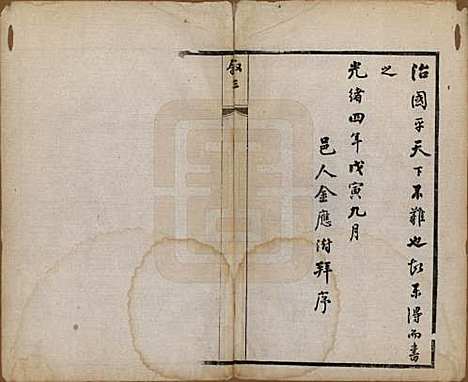 治國平天下不難也故樂得而書
之
光緒四年戊寅九月
邑人金應澍拜序
叙三